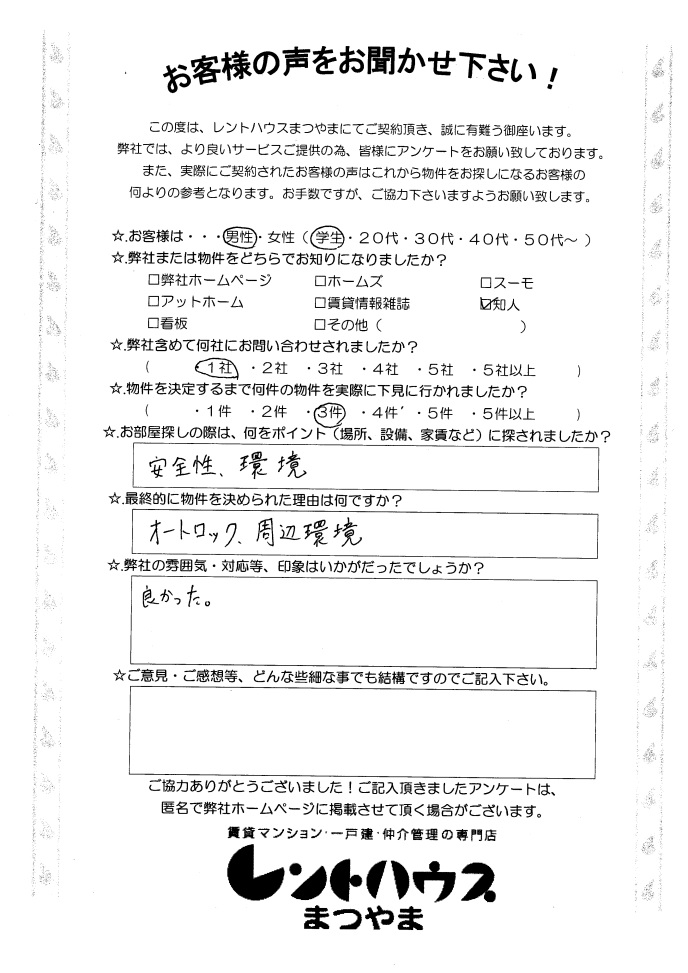 お客様の声をお聞かせ下さい！
この度は、レントハウスまつやまにてご契約頂き、誠に有難う御座います。
弊社では、より良いサービスご提供の為、皆様にアンケートをお願い致しております。
また、実際にご契約されたお客様の声はこれから物件をお探しになるお客様の
何よりの参考となります。お手数ですが、ご協力下さいますようお願い致します。
☆.お客様は・・・男性・女性（学生・２０代・３０代・４０代・５０代～）
☆.弊社または物件をどちらでお知りになりましたか？
□弊社ホームページ □ホームズ □スーモ
□アットホーム □賃貸情報雑誌 ☑知人
□看板 □その他（ ）
☆.弊社含めて何社にお問い合わせされましたか？
（ ・１社 ・２社 ・３社 ・４社 ・５社 ・５社以上 ）
☆.物件を決定するまで何件の物件を実際に下見に行かれましたか？
（ ・１件 ・２件 ・３件 ・４件 ・５件 ・５件以上 ）
☆.お部屋探しの際は、何をポイント（場所、設備、家賃など）に探されましたか？
安全性、環境
☆.最終的に物件を決められた理由は何ですか？
オートロック、周辺環境
☆.弊社の雰囲気・対応等、印象はいかがだったでしょうか？
良かった。
☆ご意見・ご感想等、どんな些細な事でも結構ですのでご記入下さい。
ご協力ありがとうございました！ご記入頂きましたアンケートは、
匿名で弊社ホームページに掲載させて頂く場合がございます。
賃貸マンション・一戸建・仲介管理の専門店
レントハウス
まつやま